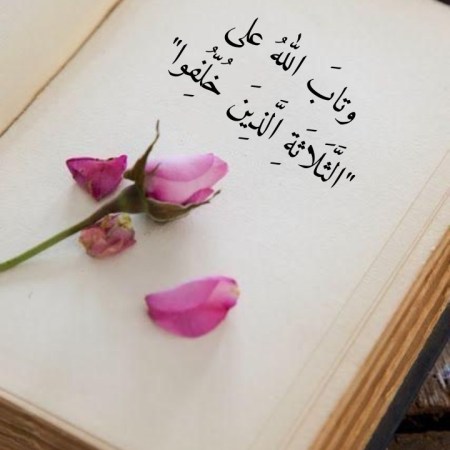 وتابَ اللَّهُ على
"الثَّلَاثَةِ الَّذِينَ خُلِّفُوا"